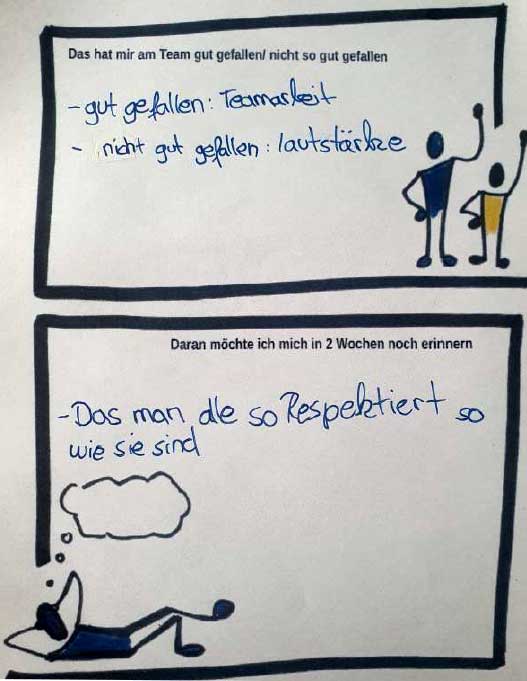 Das hat mir am Team gut gefallen/ nicht so gut gefallen
- gut gefallen: Teamarbeit
- nicht gut gefallen: lautstärke
Daran möchte ich mich in 2 Wochen noch erinnern
- Das man alle so Respektiert so
wie sie sind